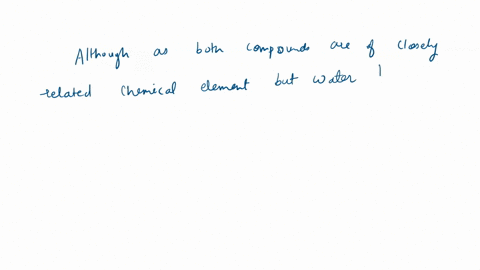 Although as both compounds are of closely
related chemical element but water